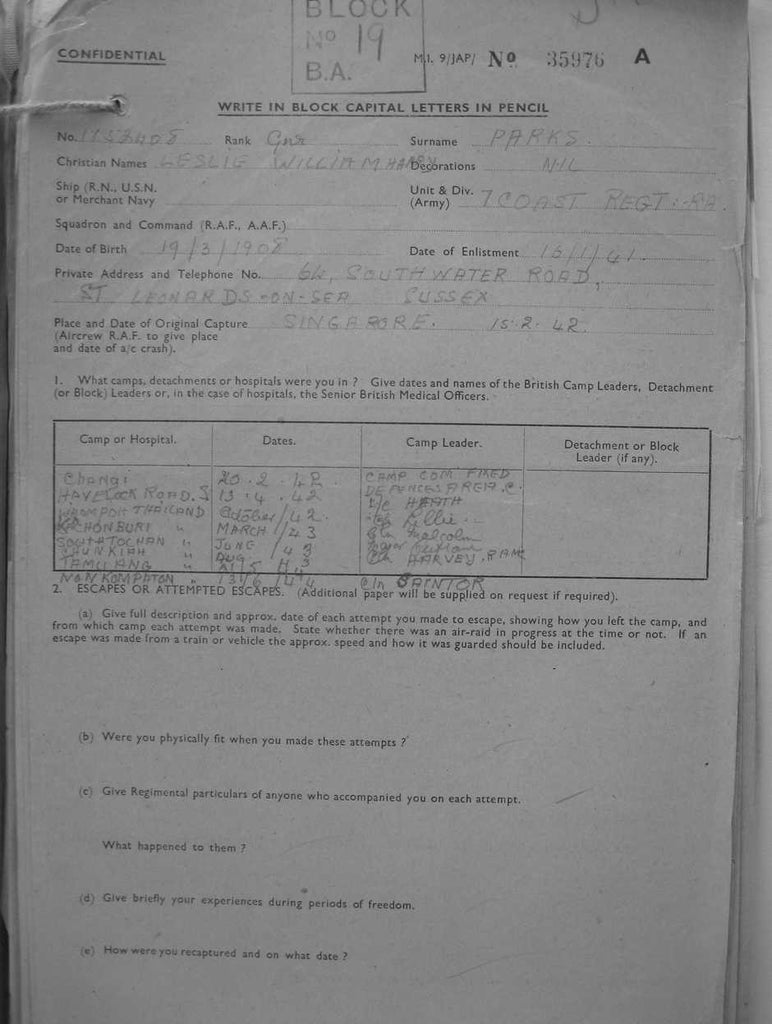 BLOCK
No 19
B.A.
CONFIDENTIAL
M.I. 9/JAP/ No 35976 A
WRITE IN BLOCK CAPITAL LETTERS IN PENCIL
No. Rank Gnr Surname PARKS.
Christian Names LESLIE WILLIAM HARRY Decorations NIL
Ship (R.N., U.S.N. or Merchant Navy
Unit & Div. (Army) 7 COAST REGT. RA.
Squadron and Command (R.A.F., A.A.F.)
Date of Birth 19/3/1908 Date of Enlistment 16/1/41.
Private Address and Telephone No. 64, SOUTHWATER ROAD,
ST LEONARDS-ON-SEA SUSSEX
Place and Date of Original Capture SINGAPORE. 15.2.42.
(Aircrew R.A.F. to give place
and date of a/c crash).
1. What camps, detachments or hospitals were you in ? Give dates and names of the British Camp Leaders, Detachment
(or Block) Leaders or, in the case of hospitals, the Senior British Medical Officers.
Camp or Hospital. Dates. Camp Leader. Detachment or Block Leader (if any).
Changi 20.2.42. CAMP COM FIXED
HAVELOCK ROAD. S 13.4.42 DEFENCES AREA.
THAILAND October/42. HEATH
KACHONBURI " MARCH/43 Lillie
SOUTH TOCHAN " JUNE/43 Malcolm
CHUNKIAH " AUG Major
TAMUANG " HARVEY. RAMC
NON KOMPHTON " 13/6/44 SAINTOR
2. ESCAPES OR ATTEMPTED ESCAPES. (Additional paper will be supplied on request if required).
(a) Give full description and approx. date of each attempt you made to escape, showing how you left the camp, and
from which camp each attempt was made. State whether there was an air-raid in progress at the time or not. If an
escape was made from a train or vehicle the approx. speed and how it was guarded should be included.
(b) Were you physically fit when you made these attempts ?
(c) Give Regimental particulars of anyone who accompanied you on each attempt.
What happened to them ?
(d) Give briefly your experiences during periods of freedom.
(e) How were you recaptured and on what date ?